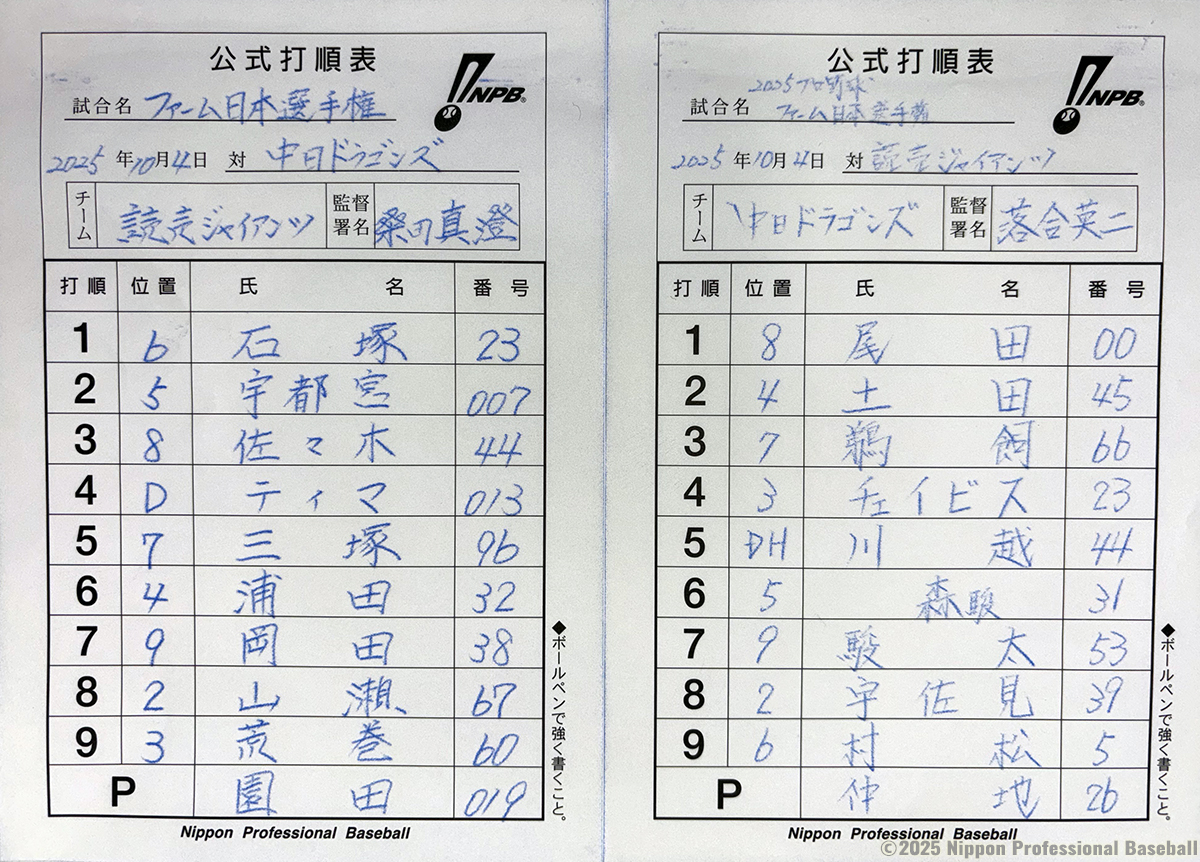 公式打順表
NPB
試合名 ファーム日本選手権
2025年10月4日 対 中日ドラゴンズ
チーム 読売ジャイアンツ 監督署名 桑田真澄
打順 位置 氏名 番号
1 6 石塚 23
2 5 宇都宮 007
3 8 佐々木 44
4 D ティマ 013
5 7 三塚 96
6 4 浦田 32
7 9 岡田 38
8 2 山瀬 67
9 3 荒巻 60
P 園田 019
◆ボールペンで強く書くこと。
Nippon Professional Baseball
公式打順表
NPB
2025プロ野球
試合名 ファーム日本選手権
2025年10月4日 対 読売ジャイアンツ
チーム 中日ドラゴンズ 監督署名 落合英二
打順 位置 氏名 番号
1 8 尾田 00
2 4 土田 45
3 7 鵜飼 66
4 3 チェイビス 23
5 DH 川越 44
6 5 森駿 31
7 9 駿太 53
8 2 宇佐見 39
9 6 村松 5
P 仲地 26
◆ボールペンで強く書くこと。
Nippon Professional Baseball
©2025 Nippon Professional Baseball